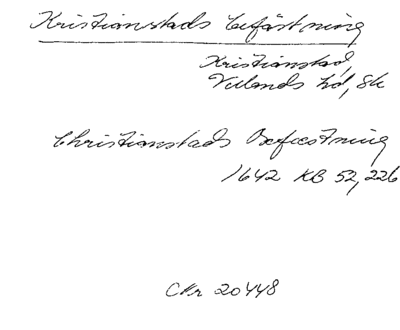 Kristianstads befästning
Kristianstad,
Villands hd, Sk
Christianstads Befæstning
1642 KB 52,226
CNr 20448